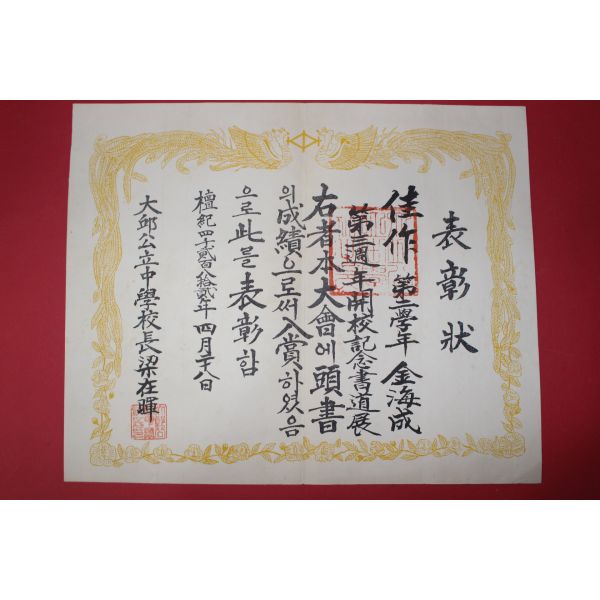 表彰狀
佳作 第二學年 金海成
第三週年開校記念書道展
右者本大會에頭書
의成績으로써入賞하였음
으로此를表彰함
檀紀四千貳百八拾貳年 四月二十八日
大邱公立中學校長梁在暉